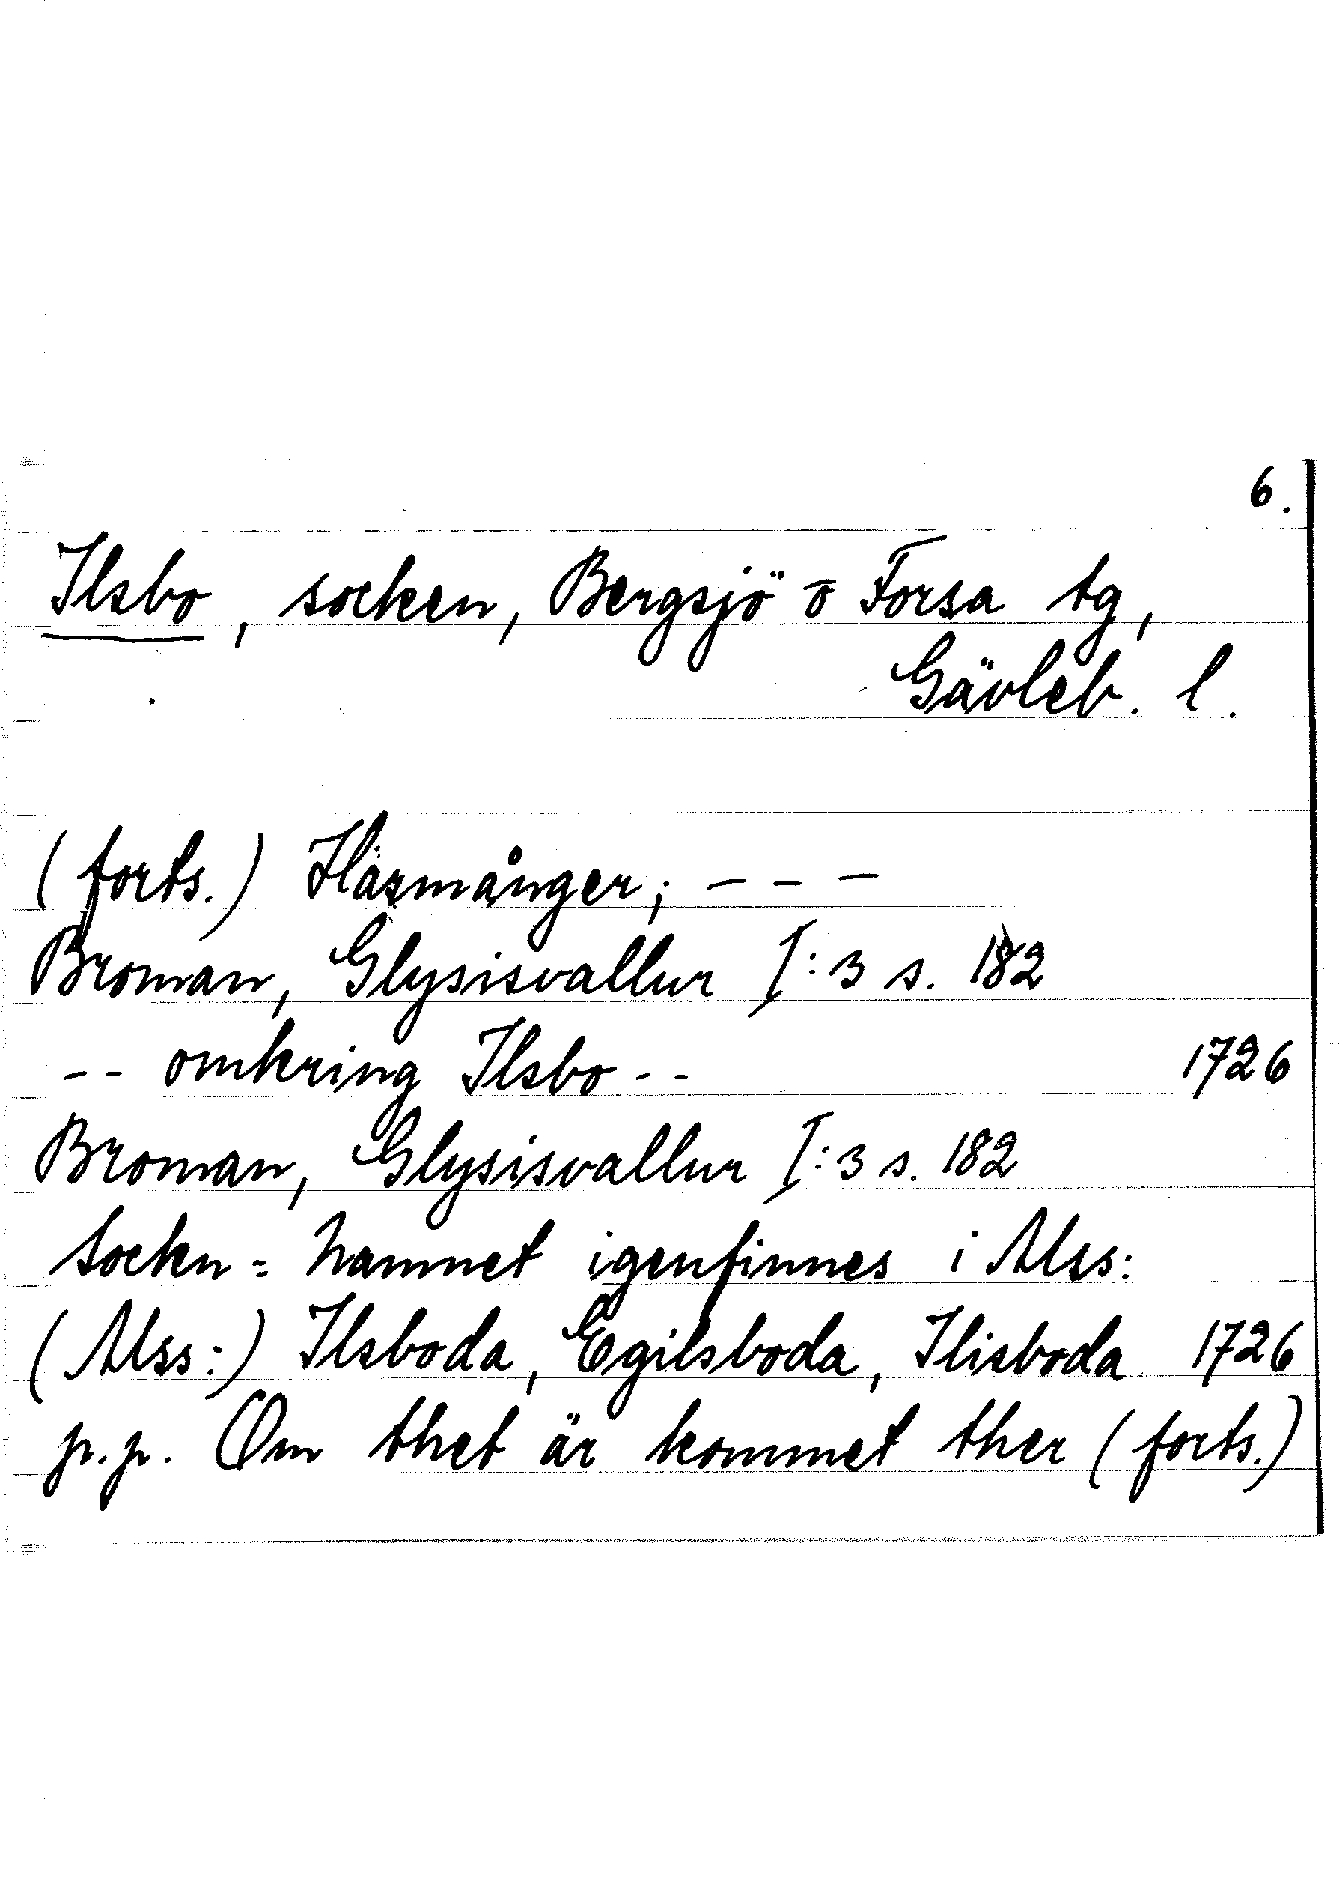 6.
Ilsbo, socken, Bergsjö o Forsa tg,
Gävleb. l.
(forts.) Häzmånger; - - -
Broman, Glysisvallur I:3 s. 182
-- omkring Ilsbo -- 1726
Broman, Glysisvallur I:3 s. 182
Sockn = namnet igenfinnes i Mss:
(Mss:) Ilsboda, Egilsboda, Ilisboda 1726
p.p. Om thet är kommet ther (forts.)